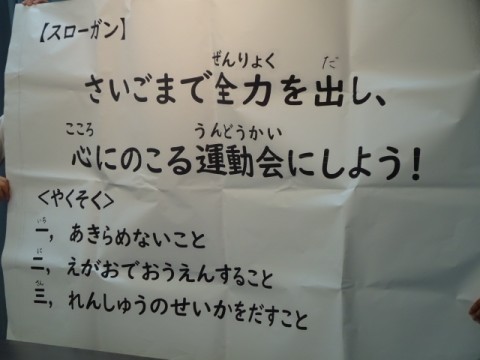 【スローガン】
ぜんりょく だ
さいごまで全力を出し、
こころ うんどうかい
心にのこる運動会にしよう！
＜やくそく＞
いち
一，あきらめないこと
に
二，えがおでおうえんすること
さん
三，れんしゅうのせいかをだすこと